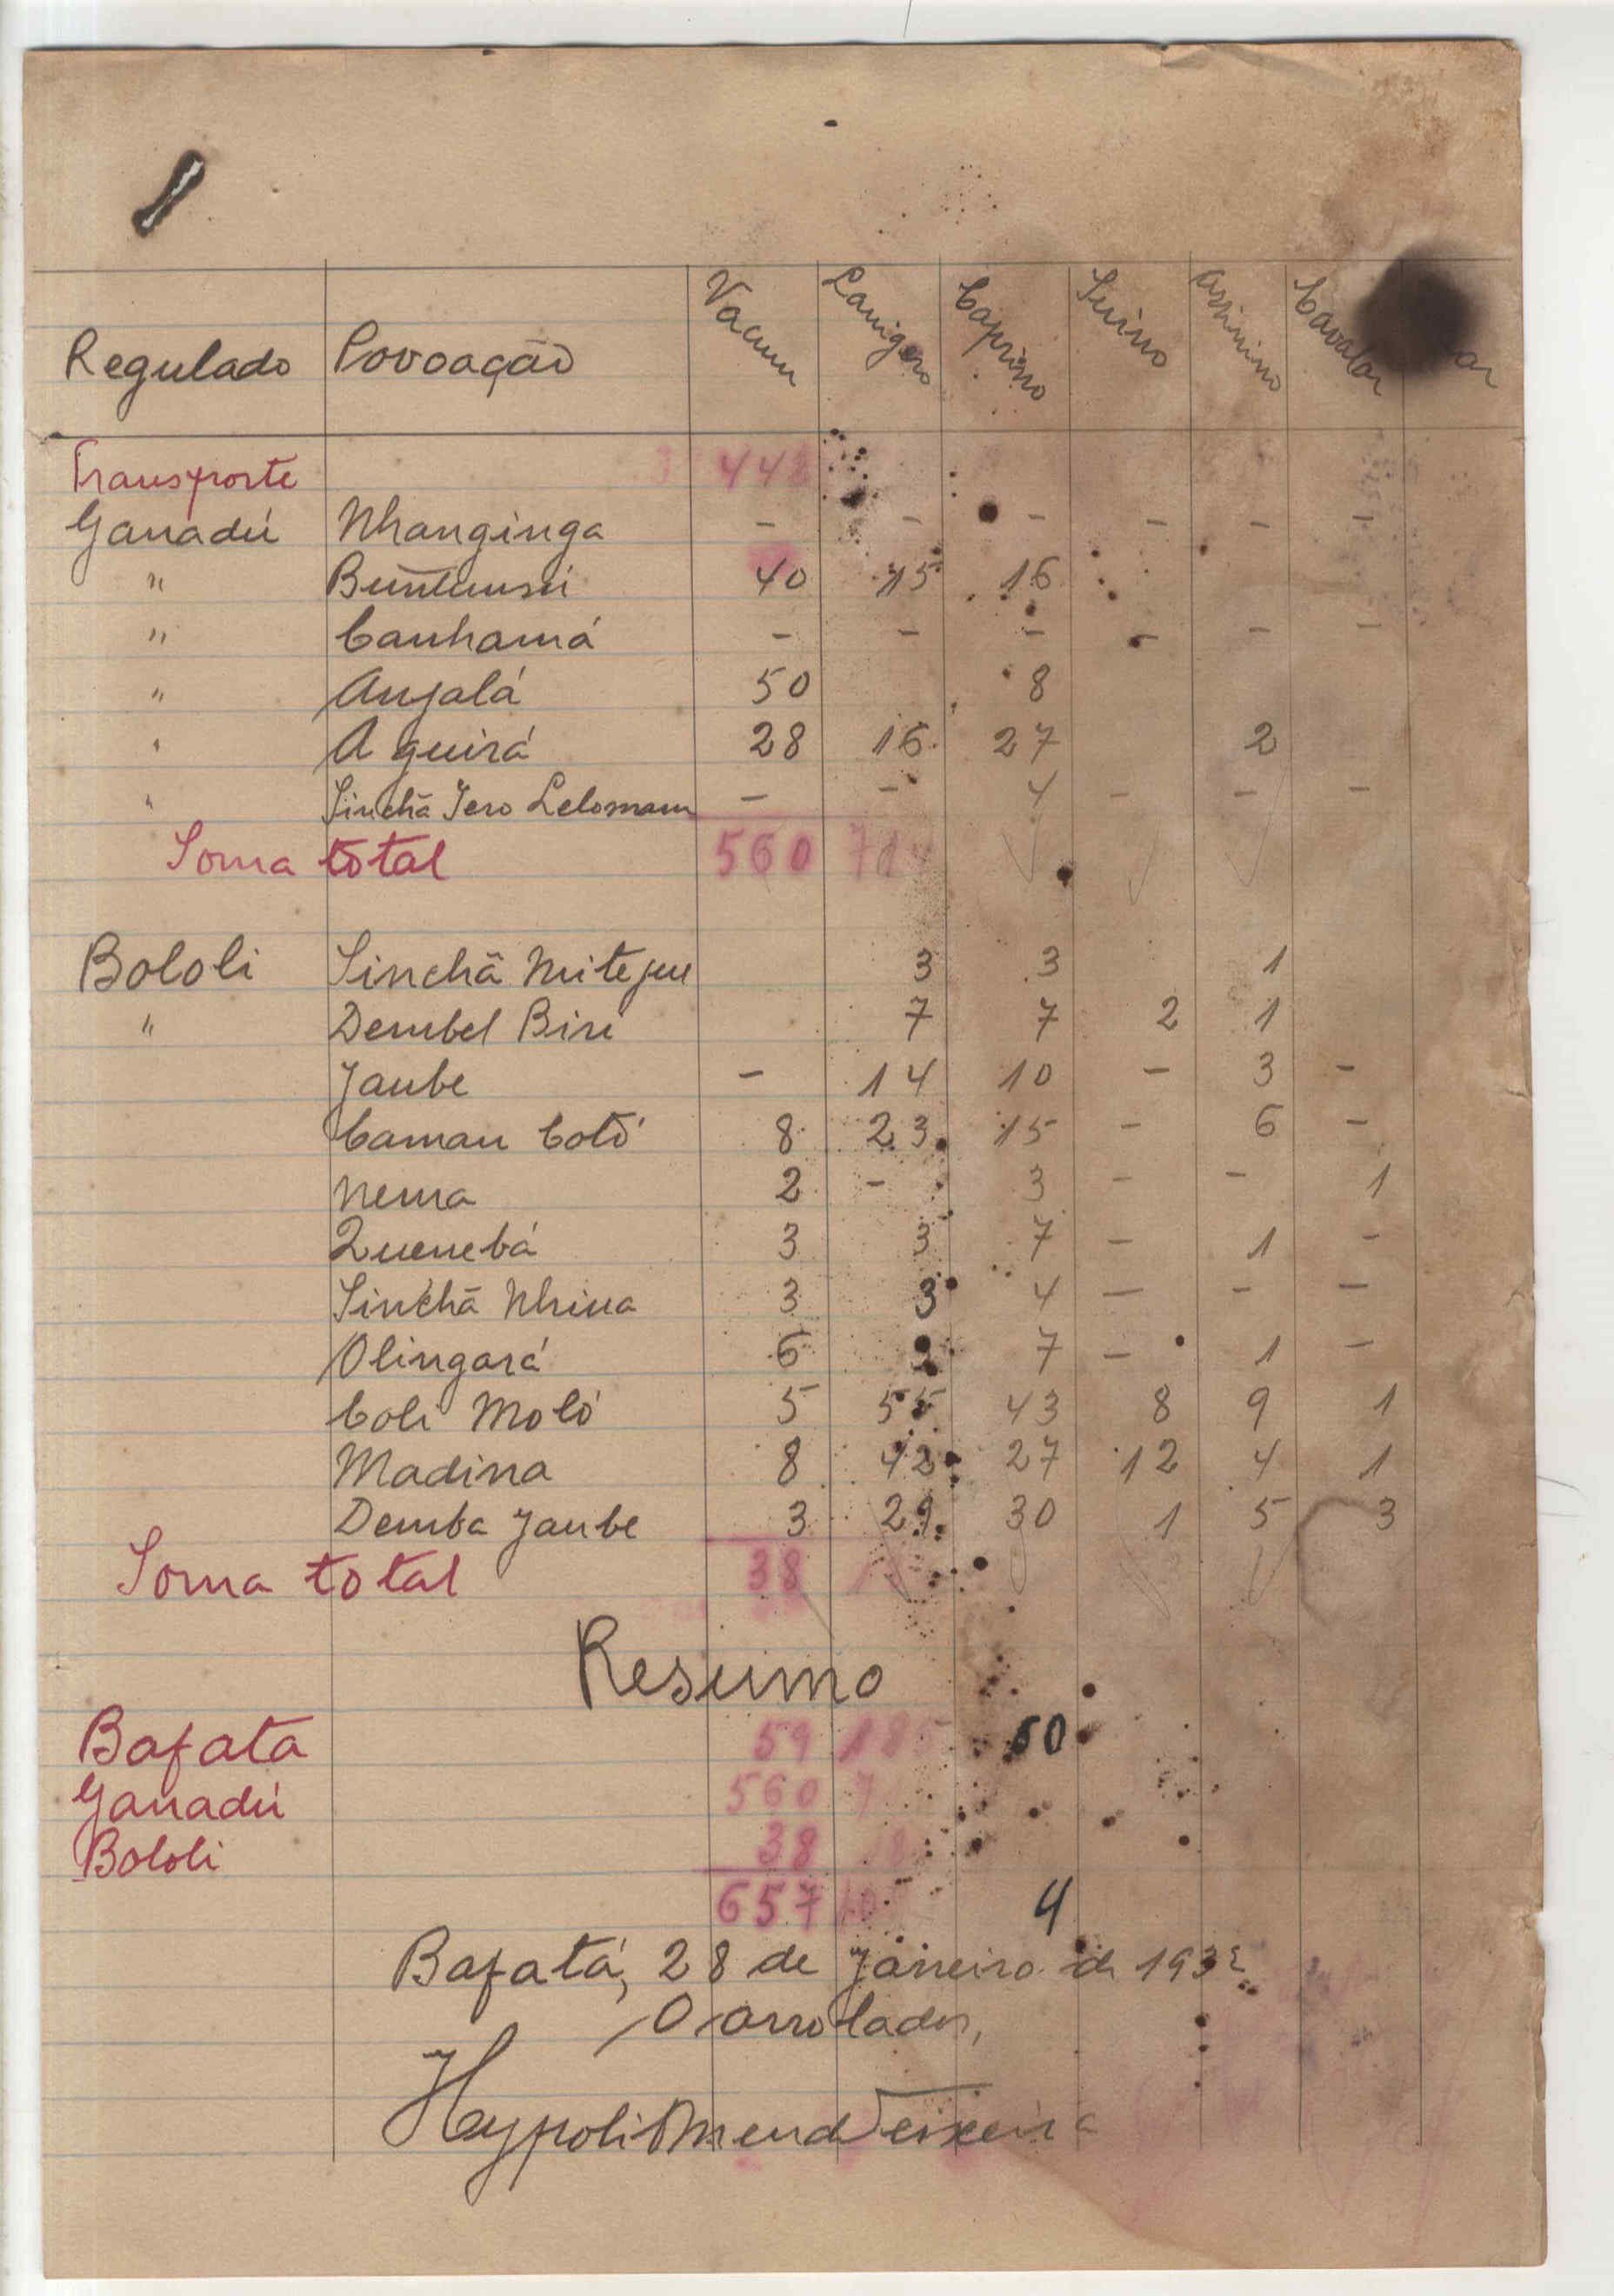 Regulado Povoação Vacum Lanigero Caprino Suino Asinino Cavalar
Transporte 442
Ganadú Nhanginga - - - - - -
" 40 15 16
" Canhamá - - - - - -
" Anjalá 50 8
" A guirá 28 16 27 2
" Sinchã Iero - - 4 - - -
Soma total 560 71
Bololi Sinchã 3 3 1
" Dembel Biri 7 7 2 1
Jaube - 14 10 - 3 -
Caman Cotó 8 23 15 - 6 -
Nema 2 - 3 - - 1
Quenebá 3 3 7 - 1 -
Sinchã Nhina 3 3 4 - - -
Olingará 6 7 - 1 -
Coli Moló 5 55 43 8 9 1
Madina 8 42 27 12 4 1
Demba Jaube 3 29 30 1 5 3
Soma total 38
Resumo
Bafata 59 185
Ganadú 560 7
Bololi 38 18
657
Bafatá, 28 de Janeiro de 193
O arrolador,
Teixeira